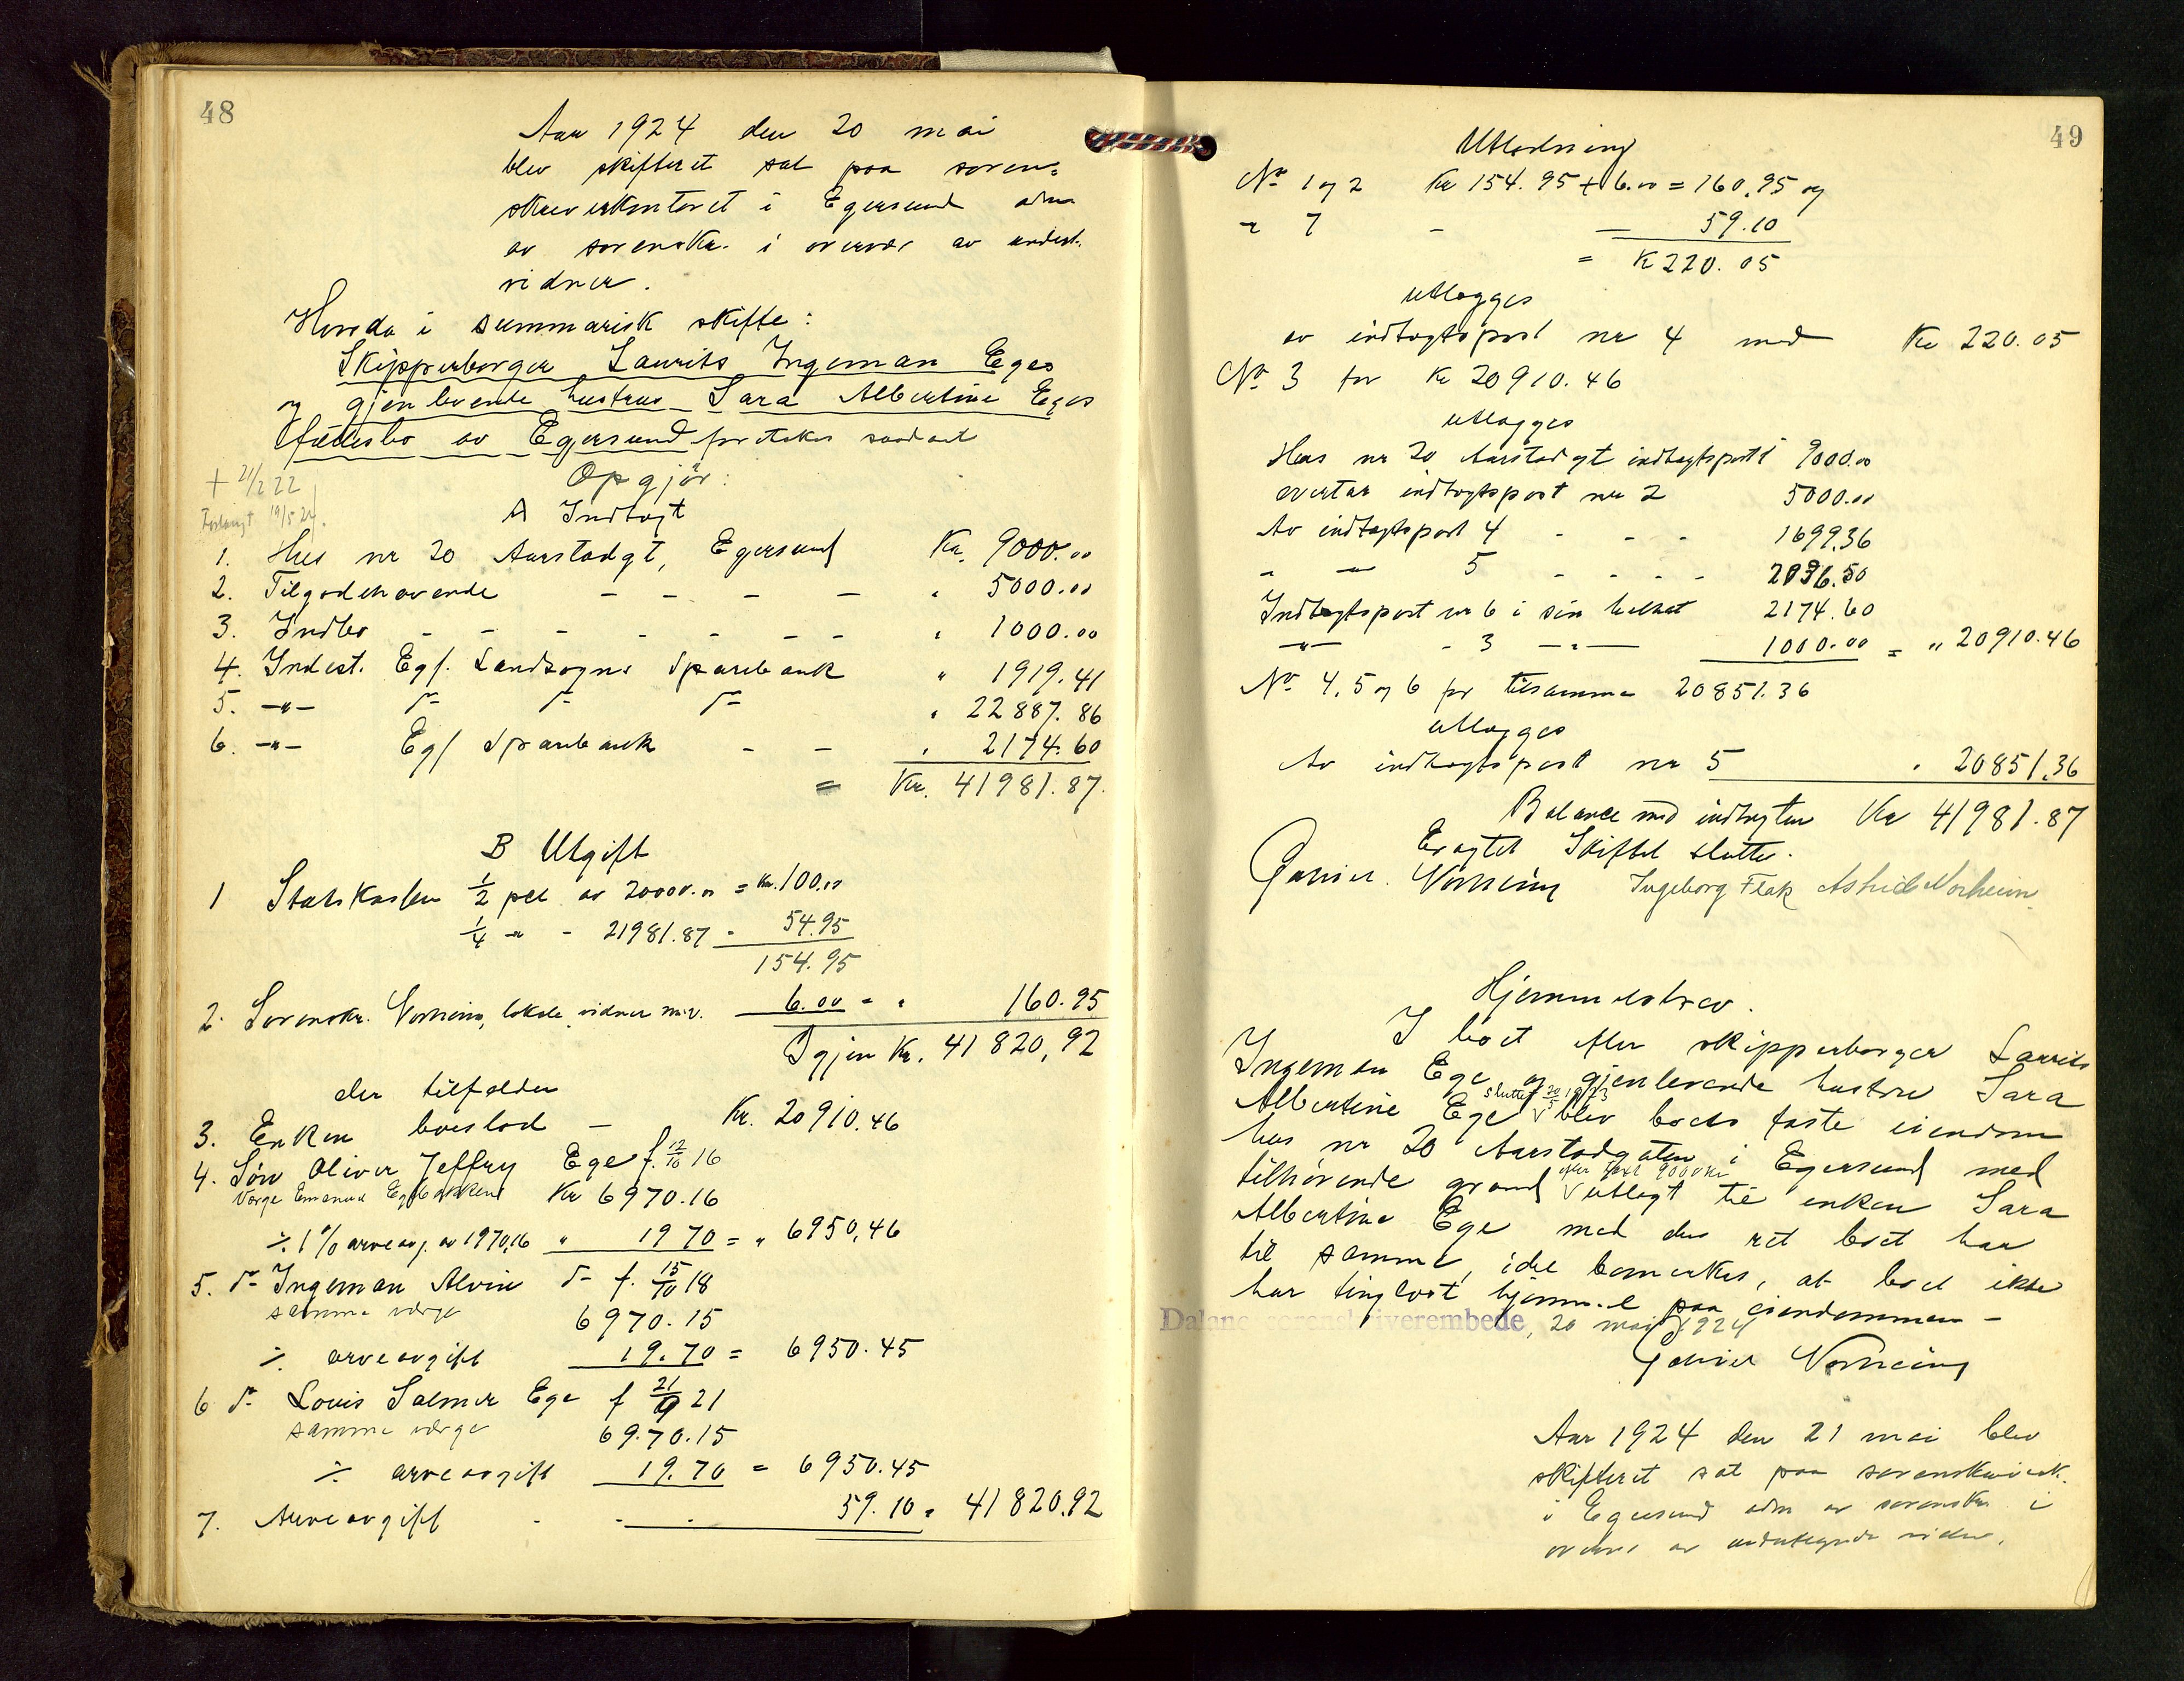 48
Aar 1924 den 20 mai
blev skifteret sat paa soren=
skriverkontoret i Egersund adm
av sorenskr. i overvær av undert.
vidner.
Hvorda i summarisk skifte:
Skipperborger Laurits Ingeman Eges
og gjenlevende hustrus Sara Albertine Eges
fællesbo av Egersund foretokes saadant
+ 21/2 22
Forlangt 19/5 24.
Opgjör:
A Indtægt
1. Hus nr 20 Aarstadgt, Egersund Kr. 9000.00
2. Tilgodehavende - - - - " 5000.00
3. Indbo - - - - - - - " 1000.00
4. Indest. Egs. Landsogns Sparebank " 1919.41
5. -"- d- d- d- " 22887.86
6. -"- Egs Sparebank - - " 2174.60
= Kr. 41981.87.
B Utgift
1 Statskassen 1/2 pct av 20000.00 = kr. 100.00
1/4 " - 21981.87 - 54.95
154.95
2. Sorenskr. Norheim, lokale, vidner m.v. 6.00 = " 160.95
Igjen Kr. 41820,92
der tilfalder
3. Enken boeslod - Kr. 20910.46
4. Sön Oliver Jeffrey Ege f. 12/10 16
Værge Emanuel Eg
Kr 6970.16
÷ 1% arveavg. av 1970,16 " 19 70 = " 6950,46
5. d- Ingeman Alvin d- f. 15/10 18
samme værge
6970.15
÷ arveavgift 19.70 = 6950.45
6 d- Louis Salmer Ege f 21/9 21
samme værge
6970.15
÷ arveavgift 19.70 = 6950.45
7. Arveavgift - - - 59.10 = 41820.92
49
Utlodning
No 1 og 2 Kr 154.95 + 6.00 = 160.95 og
" 7 - - 59.10
= K 220.05
utlægges
av indtægtspost nr 4 med Kr 220.05
No 3 for Kr 20910.46
utlægges
Hus nr 20 Aarstadgt indtægtspost 1 9000.00
overtar indtægtspost nr 2 5000.00
Av indtægtspost 4 - - - 1699.36
" -"- 5 - - - - 2036.50
Indtægtspost nr 6 i sin helhet 2174.60
-"- - 3 -"- 1000.00 = " 20910.46
No 4, 5 og 6 for tilsammen 20851.36
utlægges
Av indtægtspost nr 5 " 20851.36
Balance med indtægten Kr 41981.87
Eragtet Skiftet sluttet.
Gabriel Norheim Ingeborg Flak Astrid Norheim
Hjemmelsbrev.
I boet efter skipperborger Laurits
Ingeman Ege og gjenlevende hustru Sara
sluttet 20/5 1923
Albertine Ege √ blev boets faste eiendom
hus nr 20 Aarstadgaten i Egersund med
efter takst 9000 kr
tilhörende grund √ utlagt til enken Sara
Albertine Ege med den ret boet har
til samme, idet bemerkes, at boet ikke
har tinglyst hjemmel paa eiendommen -
Dalane sorenskriverembede, 20 mai 1924
Gabriel Norheim
Aar 1924 den 21 mai blev
skifteret sat paa sorenskriverk.
i Egersund adm av sorenskr. i
overvær av undertegnede vidner.